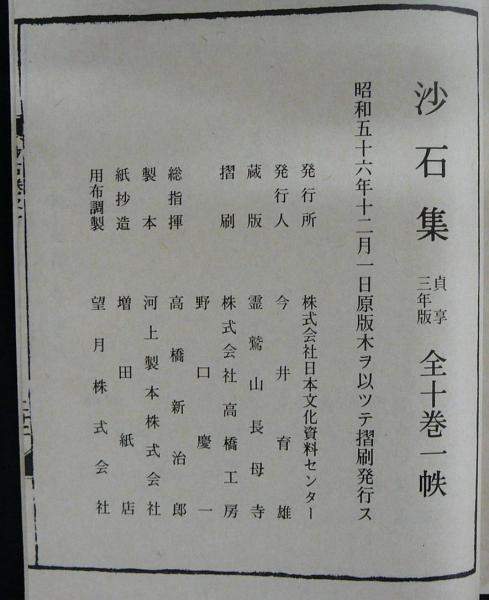 沙石集 貞享三年版 全十巻一帙
昭和五十六年十二月一日原版木ヲ以ツテ摺刷発行ス
発行所 株式会社日本文化資料センター
発行人 今井育雄
蔵版 霊鷲山長母寺
摺刷 株式会社高橋工房
野口慶一
総指揮 高橋新治郎
製本 河上製本株式会社
紙抄造 増田紙店
用布調製 望月株式会社